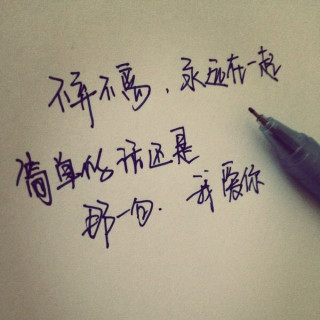 不弃不离,永远在一起
简单的话还是
那一句.我爱你